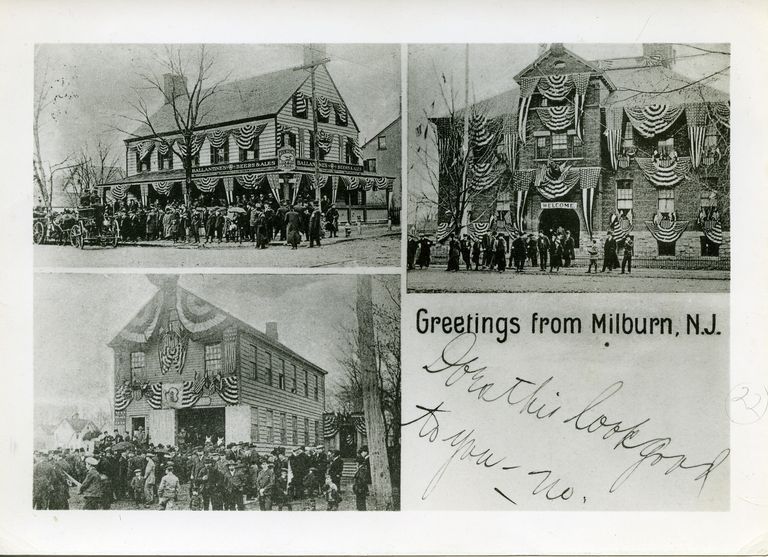 BALLANTINE'S BEERS & ALES
BALLANTINE'S
WELCOME
Greetings from Milburn, N.J.
Does this look good
to you - no.
22